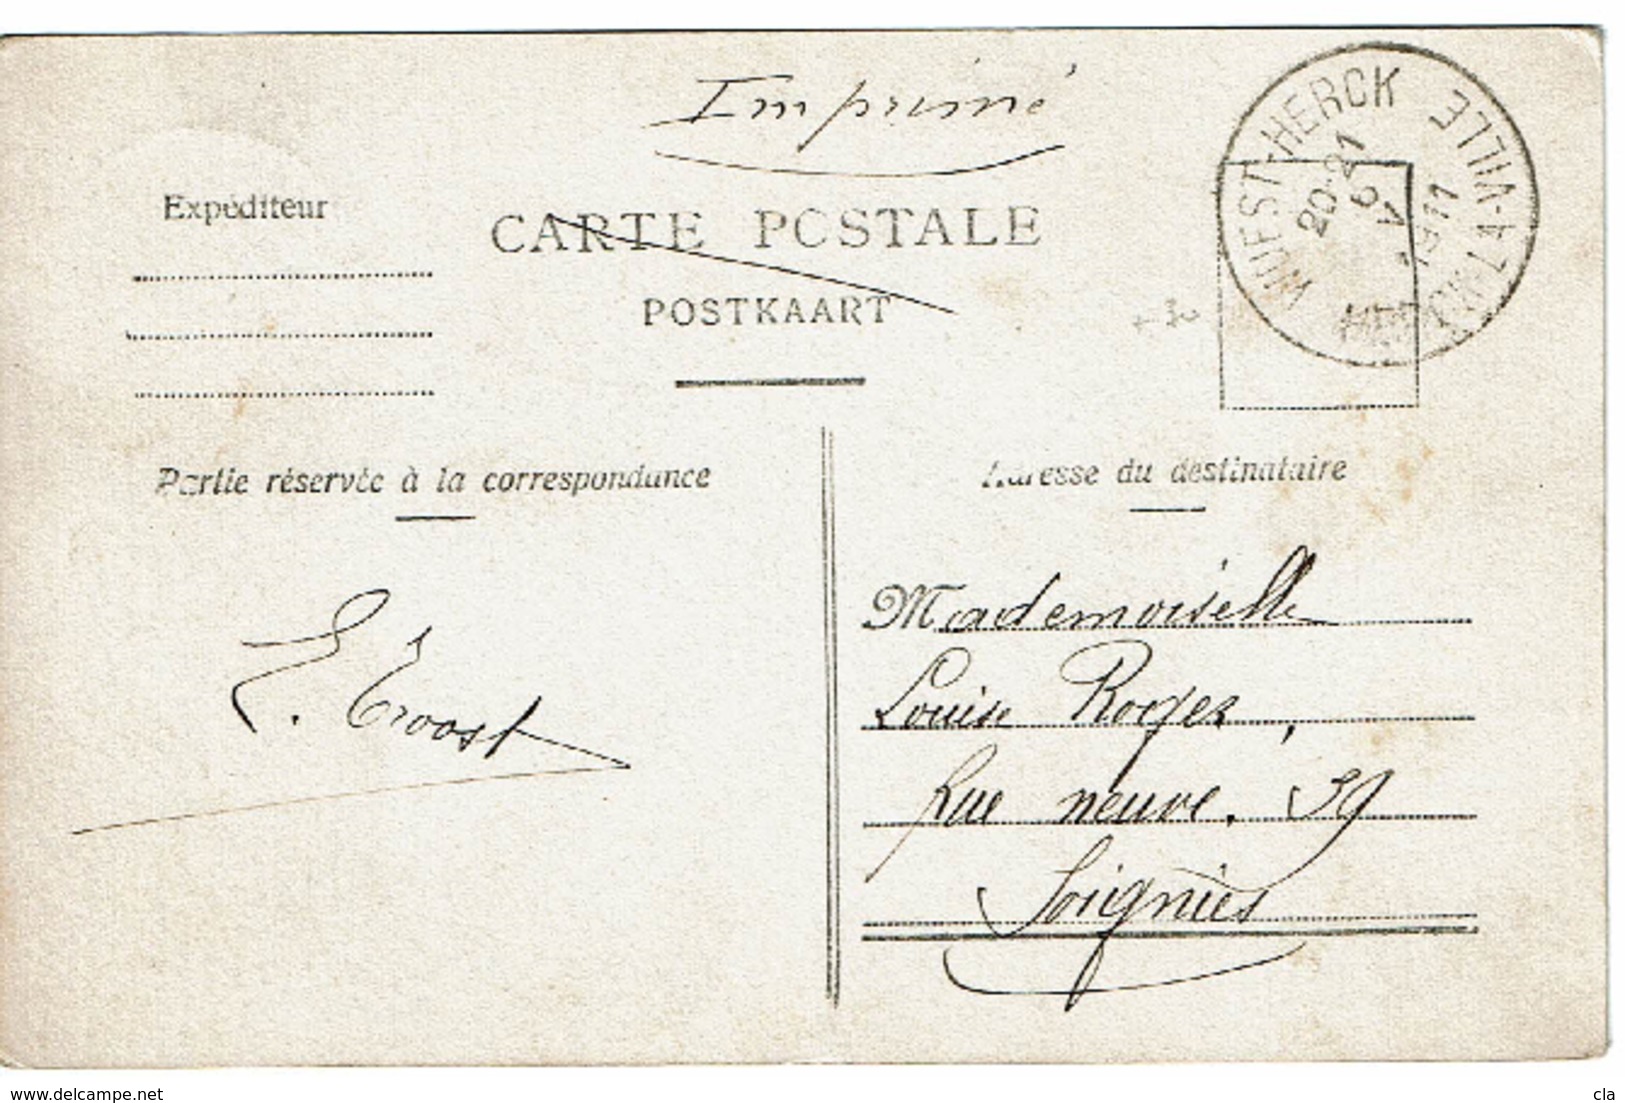 Imprimé
WUEST-HERCK
HERCK-LA-VILLE
20-21
6
1911
Expéditeur
CARTE POSTALE
POSTKAART
Partie réservée à la correspondance
Adresse du destinataire
Mademoiselle
Louise Roger,
Rue neuve. 39
Soignies
E. Troost
www.delcampe.net
cla